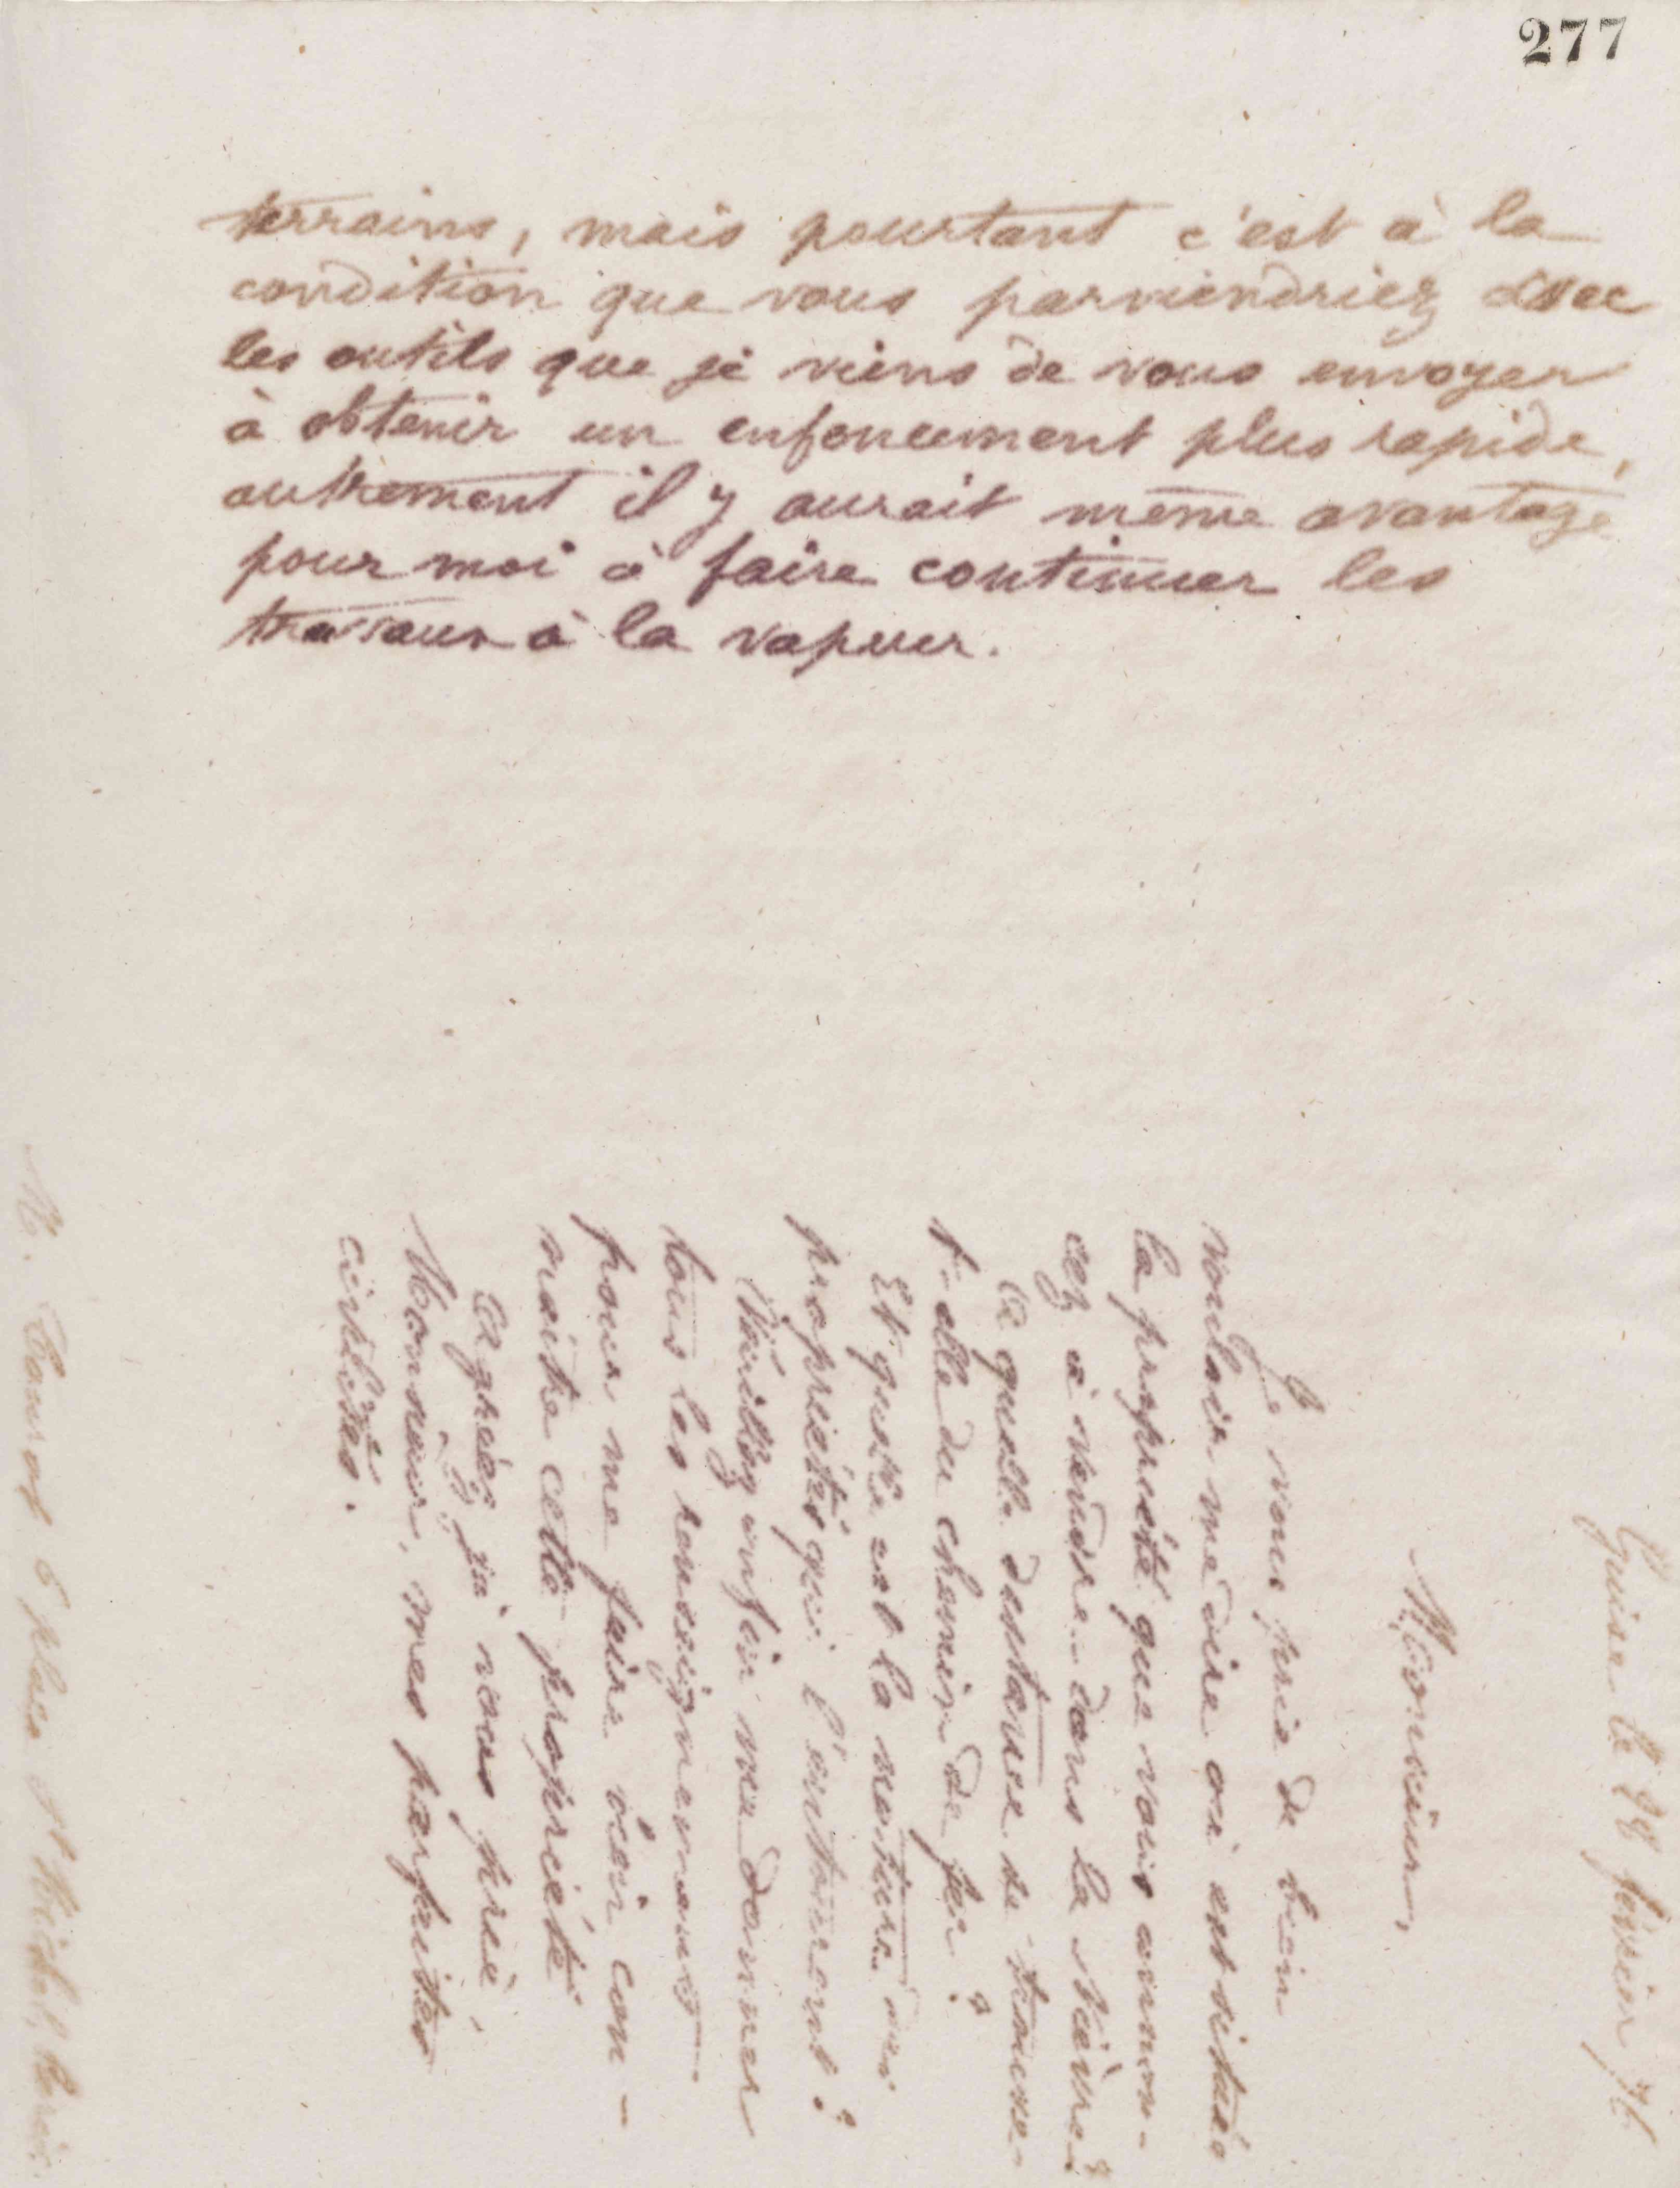 277
terrains, mais pourtant c'est à la
condition que vous parviendriez avec
les outils que je viens de vous envoyer
à obtenir un enfoncement plus rapide,
autrement il y aurait même avantage
pour moi à faire continuer les
travaux à la vapeur.
Guise le 28 février 76
Monsieur,
Je vous prie de bien
vouloir me dire où est située
la propriété que vous annon-
cez à vendre dans la Nièvre?
A quelle distance se trouve-
t-elle du chemin de fer?
Et quelle est la nature des
propriétés qui l'entourent?
Veuillez enfin me donner
tous les renseignements
pour me faire bien con-
naître cette propriété
Agréez je vous prie,
Monsieur, mes parfaites
civilités.
M. 6 place St Michel, Paris.